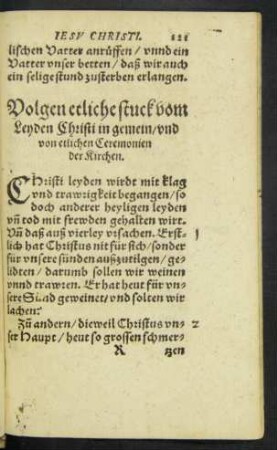 IESV CHRISTI. 121
lischen Vatter anrůffen / vnnd ein
Vatter vnser betten / daß wir auch
ein selige stund zusterben erlangen.
Volgen etliche stuck vom
Leyden Christi in gemein / vnd
von etlichen Ceremonien
der Kirchen.
CHristi leyden wirdt mit klag
vnd trawrigkeit begangen / so
doch anderer heyligen leyden
vñ tod mit frewden gehalten wirt.
Vñ daß auß vierley vrsachen. Erst- 1
lich hat Christus nit für sich / sonder
für vnsere sünden außzutilgen / ge-
lidten / darumb sollen wir weinen
vnnd trawren. Er hat heut für vn-
sere Sünd geweinet / vnd solten wir
lachen?
Zů andern / dieweil Christus vn- 2
ser Haupt / heut so grossen schmer-
R tzen